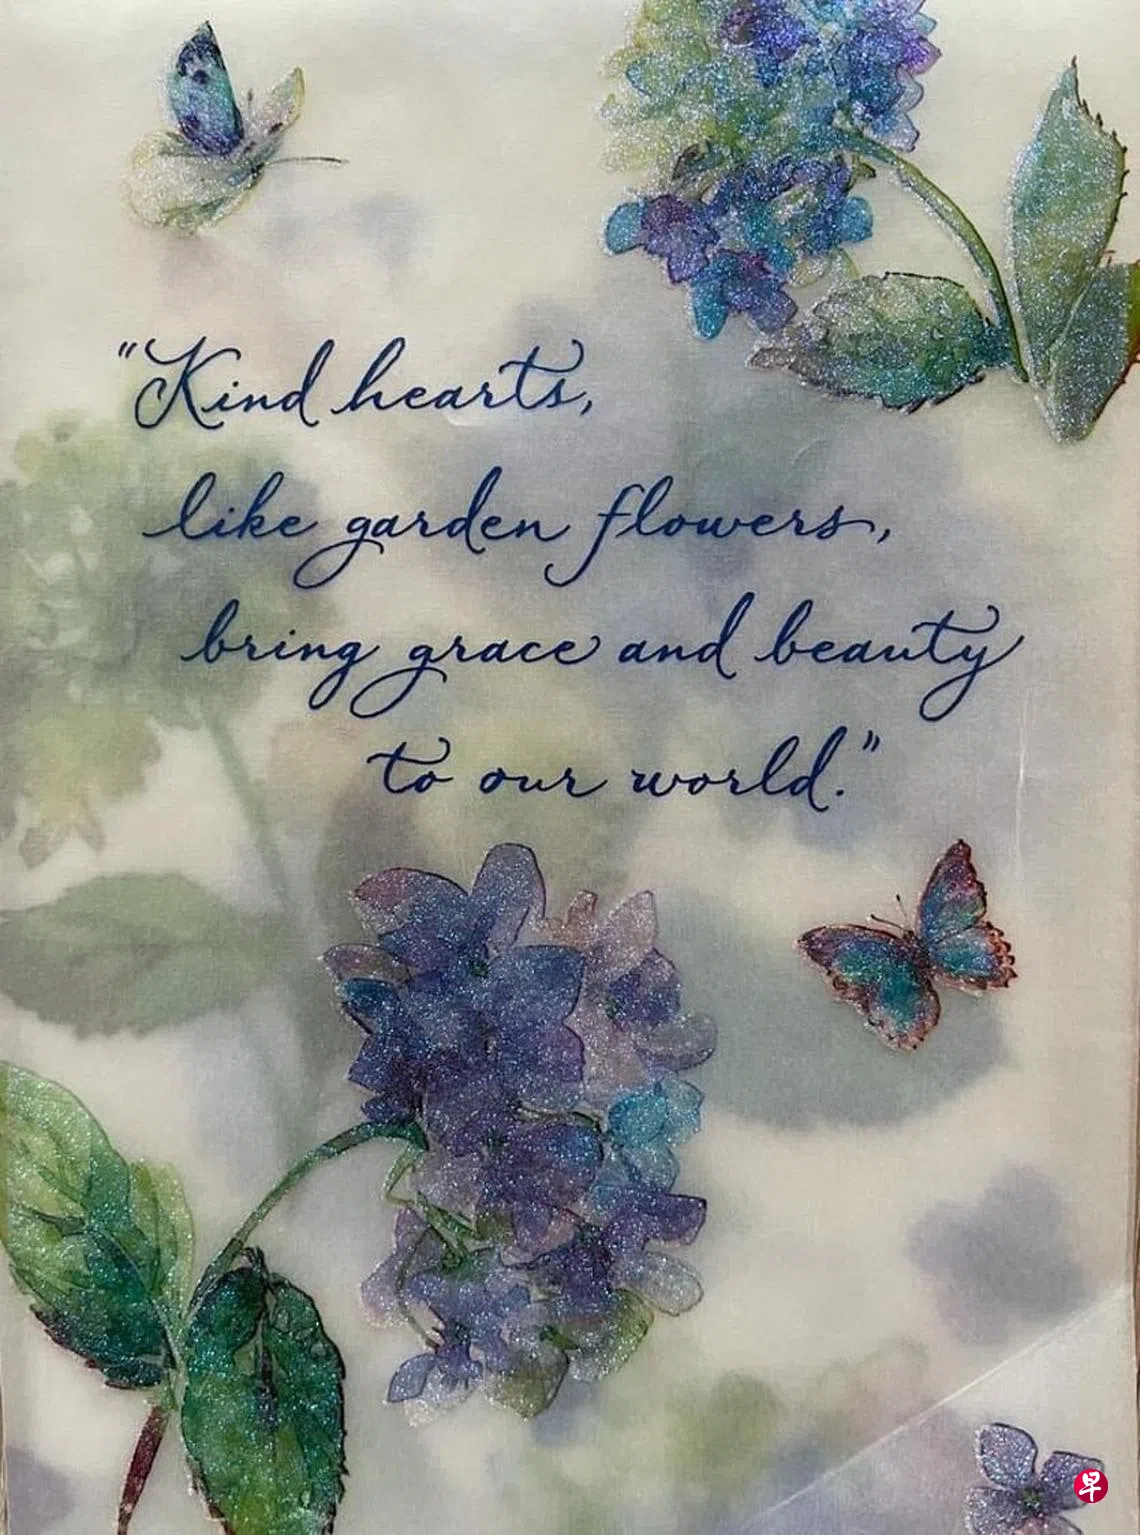 “Kind hearts,
like garden flowers,
bring grace and beauty
to our world.”
早